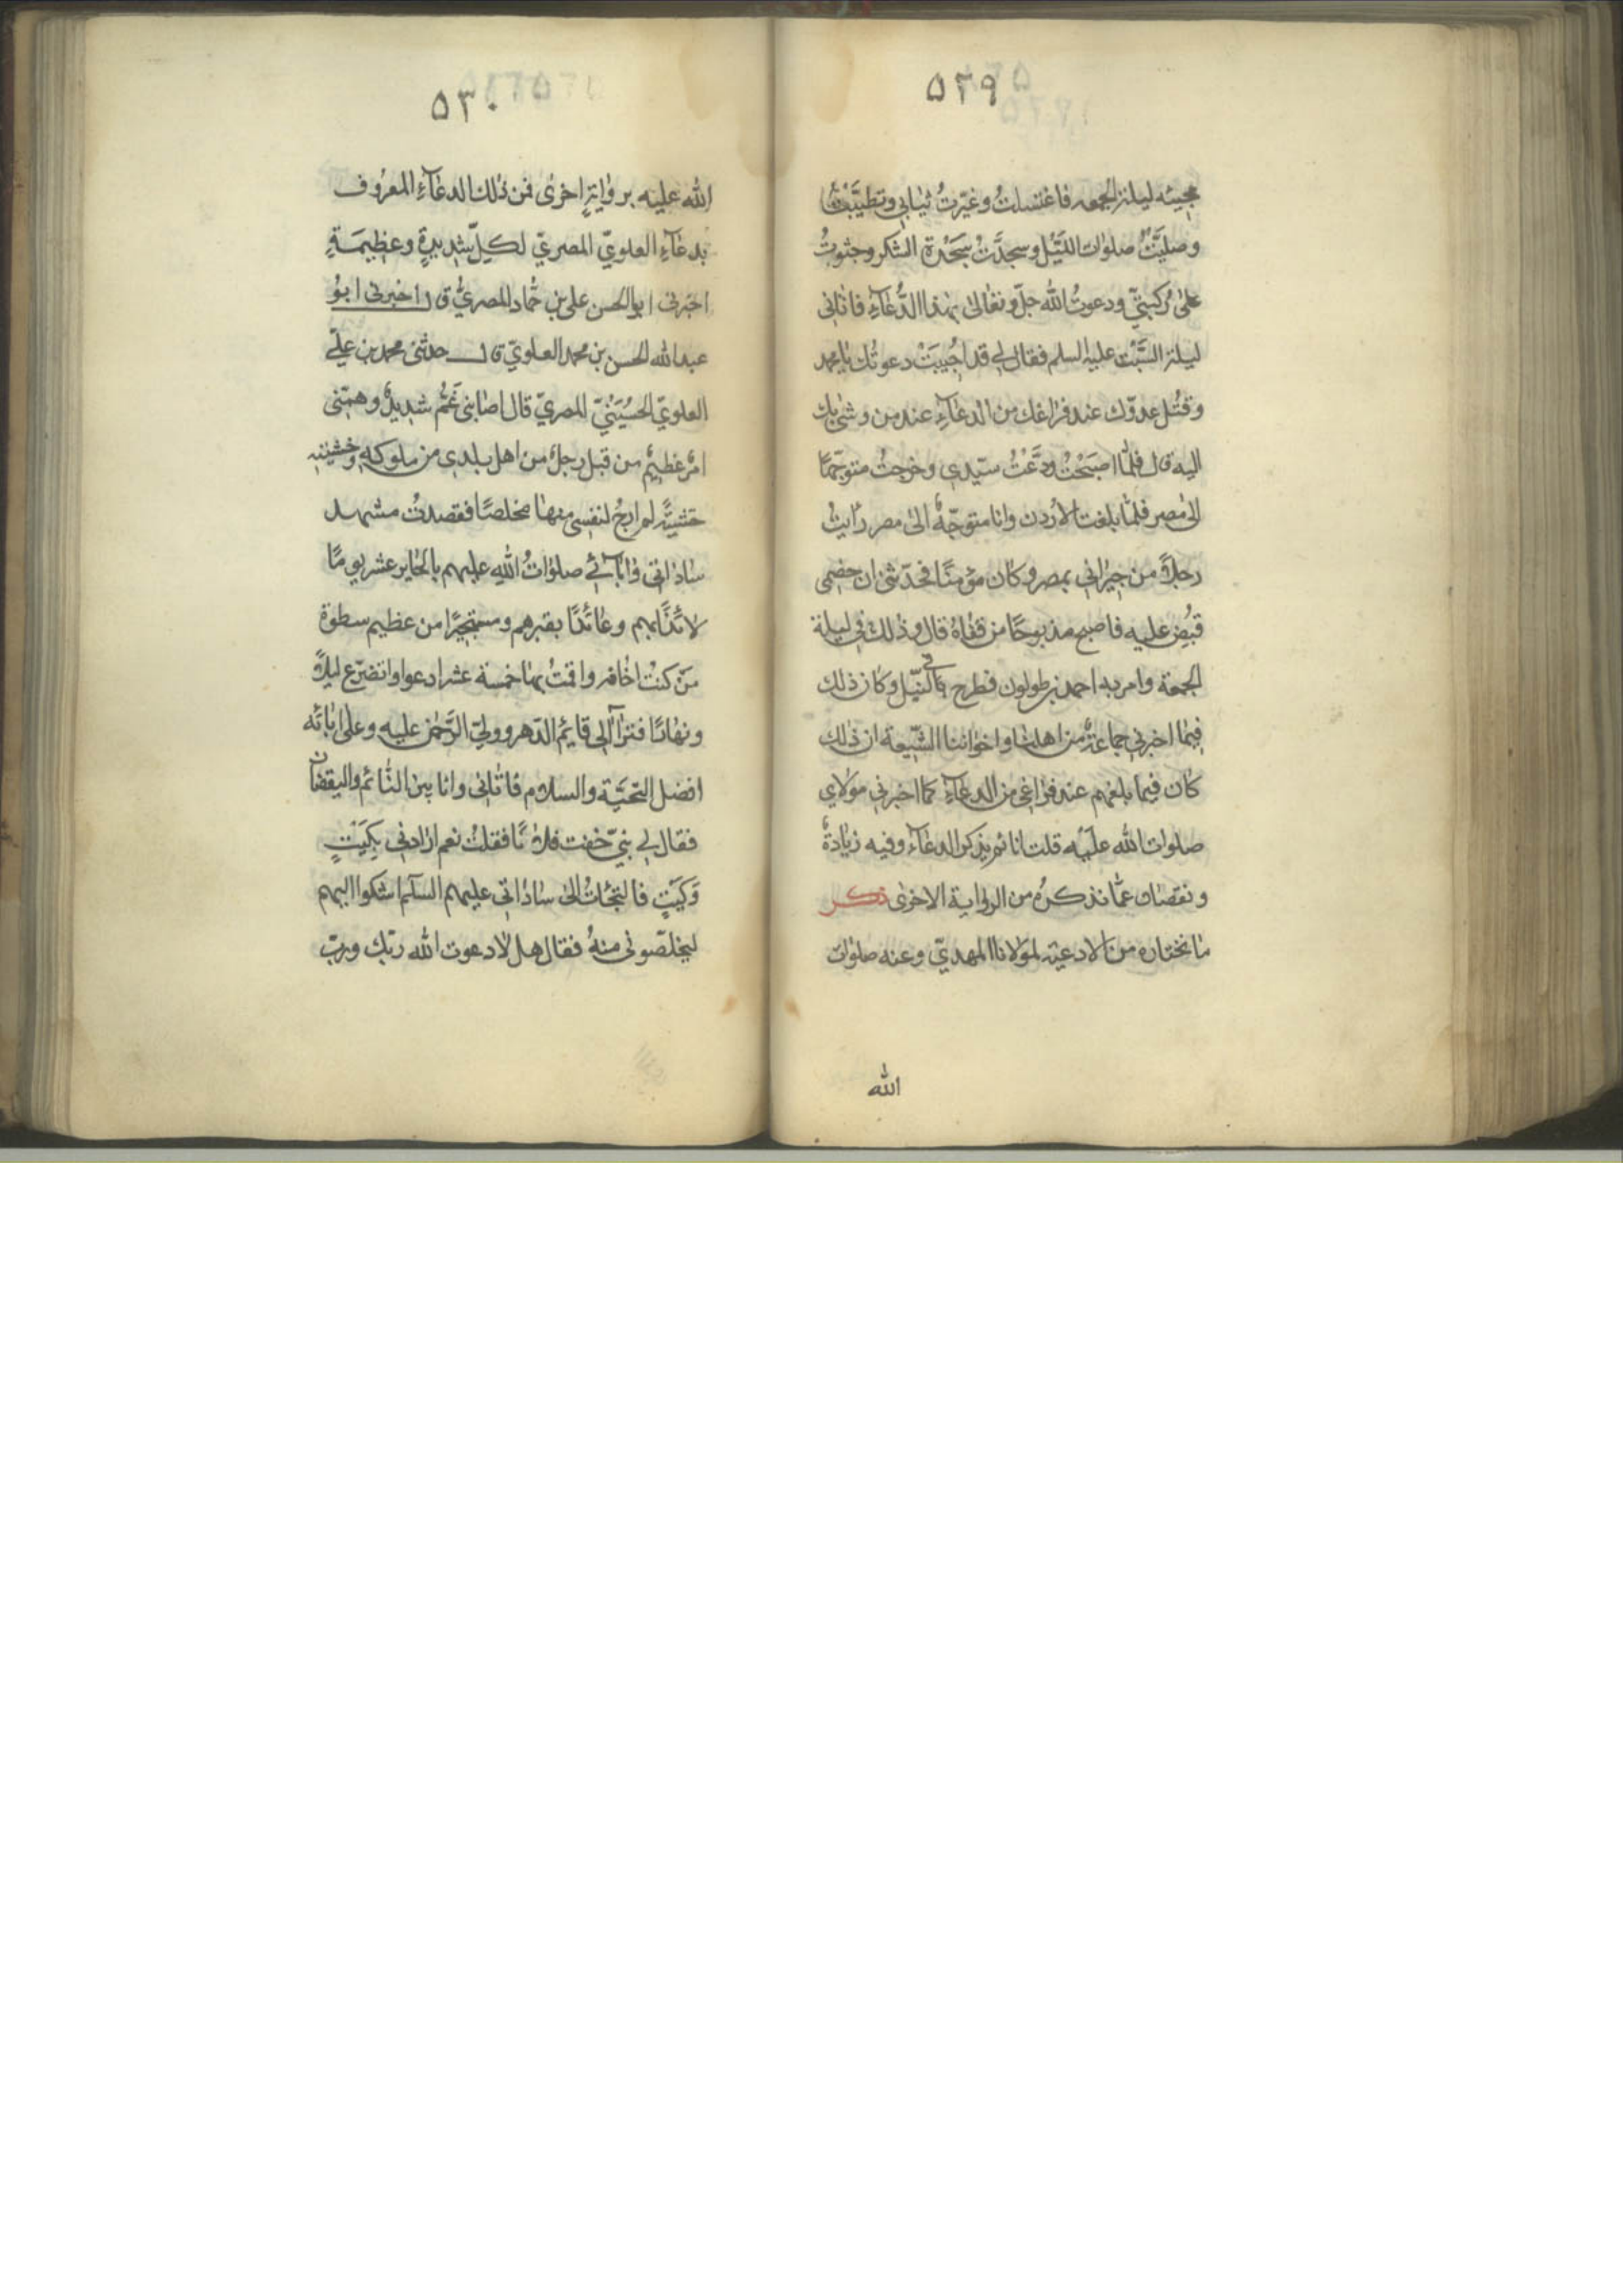 ۵۲۹
مجيئه ليلة الجمعه فاغتسلتُ وغيّرتُ ثيابي وتطيّبتُ
وصليّتُ صلوات اللّيل وسجدتُ سجدة الشكر وجثوتُ
على ركبتيّ ودعوتُ الله جلّ وتعالى بهذا الدُّعآءِ فاتانى
ليلة السَّبت عليه السلم فقال لي قد اجُيبَتْ دعوتُك يا محمد
وقتُل عدوّك عند فراغك من الدعآءِ عند من وشى بك
اليه قال فلمّا اصبَحْتُ ودَّعْتُ سيّدي وخرجتُ متوجّهًا
الى مصر فلمّا بلغت الاردن وانا متوجّهٌ الى مصر رأيتُ
رجلاً من جيراني بمصر وكان مؤمنًا فحدّثنى ان خصمى
قبُضِ عليه فاصبح مذبوحًا من قفاهُ قال وذلك في ليلة
الجمعة وامر به احمد بن طولون فطرح في النيّل وكان ذلك
فيما اخبرني جماعةٌ من اهلنا واخواننا الشيّعة ان ذلك
كان فيما بلغهم عند فراغى من الدعآءِ كما اخبرني مولاي
صلوات الله عليه قلت انا ثم يذكر الدعآء وفيه زيادةٌ
ونقصان عمّا نذكرُه من الرواية الاخرى ذكر
ما نختاره من الادعية لمولانا المهديّ وعنه صلوات
الله
۵۳۰
الله عليه بروايةٍ اخرى فمن ذلك الدعآءِ المعرُوف
بدعآءِ العلويّ المصريّ لكلّ شديدةٍ وعظيمَةٍ
اخبرنى ابو الحسن على بن حمّاد المصريُّ قال اخبرنى ابوُ
عبد الله الحسن بن محمد العلويّ قال حدثنى محمد بن علىّ
العلويّ الحسُيَنْيّ المصريّ قال اصابنى غَمٌّ شديدٌ وهمّنى
امرٌ عظيمٌ من قبل رجل من اهل بلدى من ملوكه وخشيته
خشيةً لم ارجُ لنفسى منها مخلصًا فقصدتُ مشهد
ساداتى وابآئي صلواتُ اللهِ عليهم بالحاير عشر يومًا
لائذًا بهم وعائذًا بقبرهم ومستجيرًا من عظيم سطوة
منّ كنتُ اخافه واقمتُ بها خمسة عشر ادعوا واتضرّع ليلاً
ونهارًا فترآآلى قايمُ الدّهر ووليّ الرَّحمن عليه وعلى ابائه
افضل التحيّة والسلام فاتانى وانا بين النّائم واليقضان
فقال لي بنيّ خفت فلانًا فقلتُ نعم ارادني بِكيَتْ
وَكيَتْ فالتجأتُ الى ساداتى عليهم السلم اشكوا اليهم
ليخلصّونى منهُ فقال هل لا دعوت الله ربّك وربّ